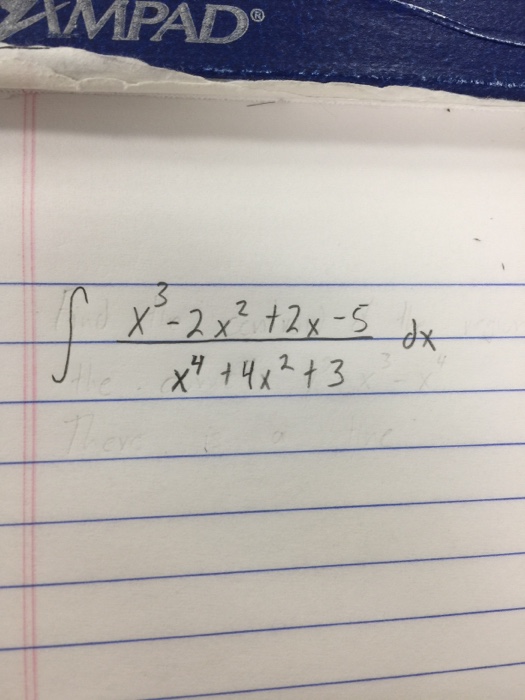 AMPAD®
∫ (x³ - 2x² + 2x - 5)/(x⁴ + 4x² + 3) dx